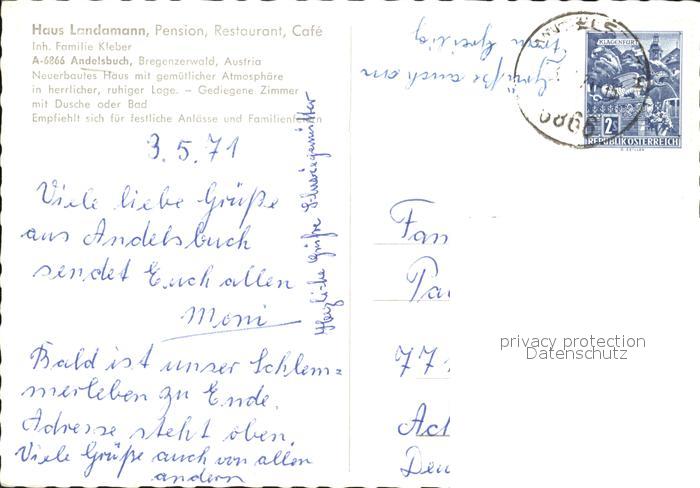 Haus Landamann, Pension, Restaurant, Café
Inh. Familie Kleber
A-6866 Andelsbuch, Bregenzerwald, Austria
Neuerbautes Haus mit gemütlicher Atmosphäre
in herrlicher, ruhiger Lage. – Gediegene Zimmer
mit Dusche oder Bad
Empfiehlt sich für festliche Anlässe und Familienfeiern
3.5.71
Viele liebe Grüße
aus Andelsbuch
sendet Euch allen
Moni
Bald ist unser Schlem=
merleben zu Ende.
Adresse steht oben.
Viele Grüße auch von allen
andern
Herzliche Grüße Schwiegermutter
Grüße auch an
Frau
KLAGENFURT
2S
REPUBLIK ÖSTERREICH
6866
Fam
Pa
77
Ach
Deu
privacy protection
Datenschutz